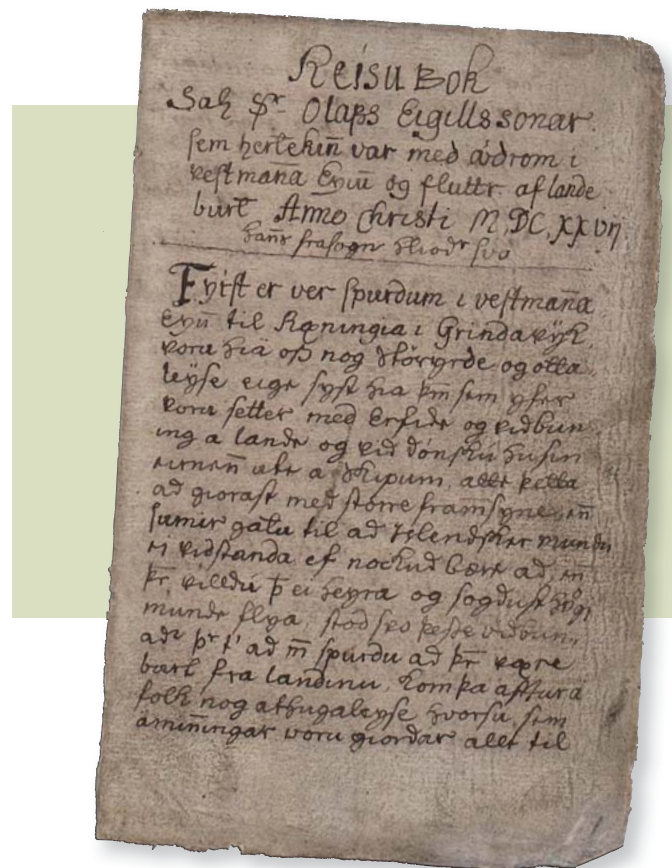 Reisu Bok
Sal Sr Olafs Eigillssonar
sem hertekin̄ var med ǫdrom i
vestman̄a Eyiū og fluttr af lande
burt Anno Christi M DC XXVII
hans frasogn hliodr svo
Fyrst er ver spurdum i vestman̄a
Eyiū til Ræningia i Grindavijk
voru hia oß nog storyrde og otta
leyse eige syst hia þm̄ sem yfer
voru setter med Erfide og vidbun
ing a lande og vid dónskú húsin
eirnen̄ ute a skipum, allt þetta
ad giorast med storre framsyne, en̄
sumir gátu til ad Islendsker mundu
ei vidstanda ef nockud bære ad, en̄
þr villdu þ ei heyra og sogdust
munde flya, stod svo þesse vidbun
adr þr t' ad m̄ spurdu ad þr være
burt fra landinu, kom þa aftur a
folk nog athugaleyse hvorsu sem
amin̄ingar voru giordar allt til